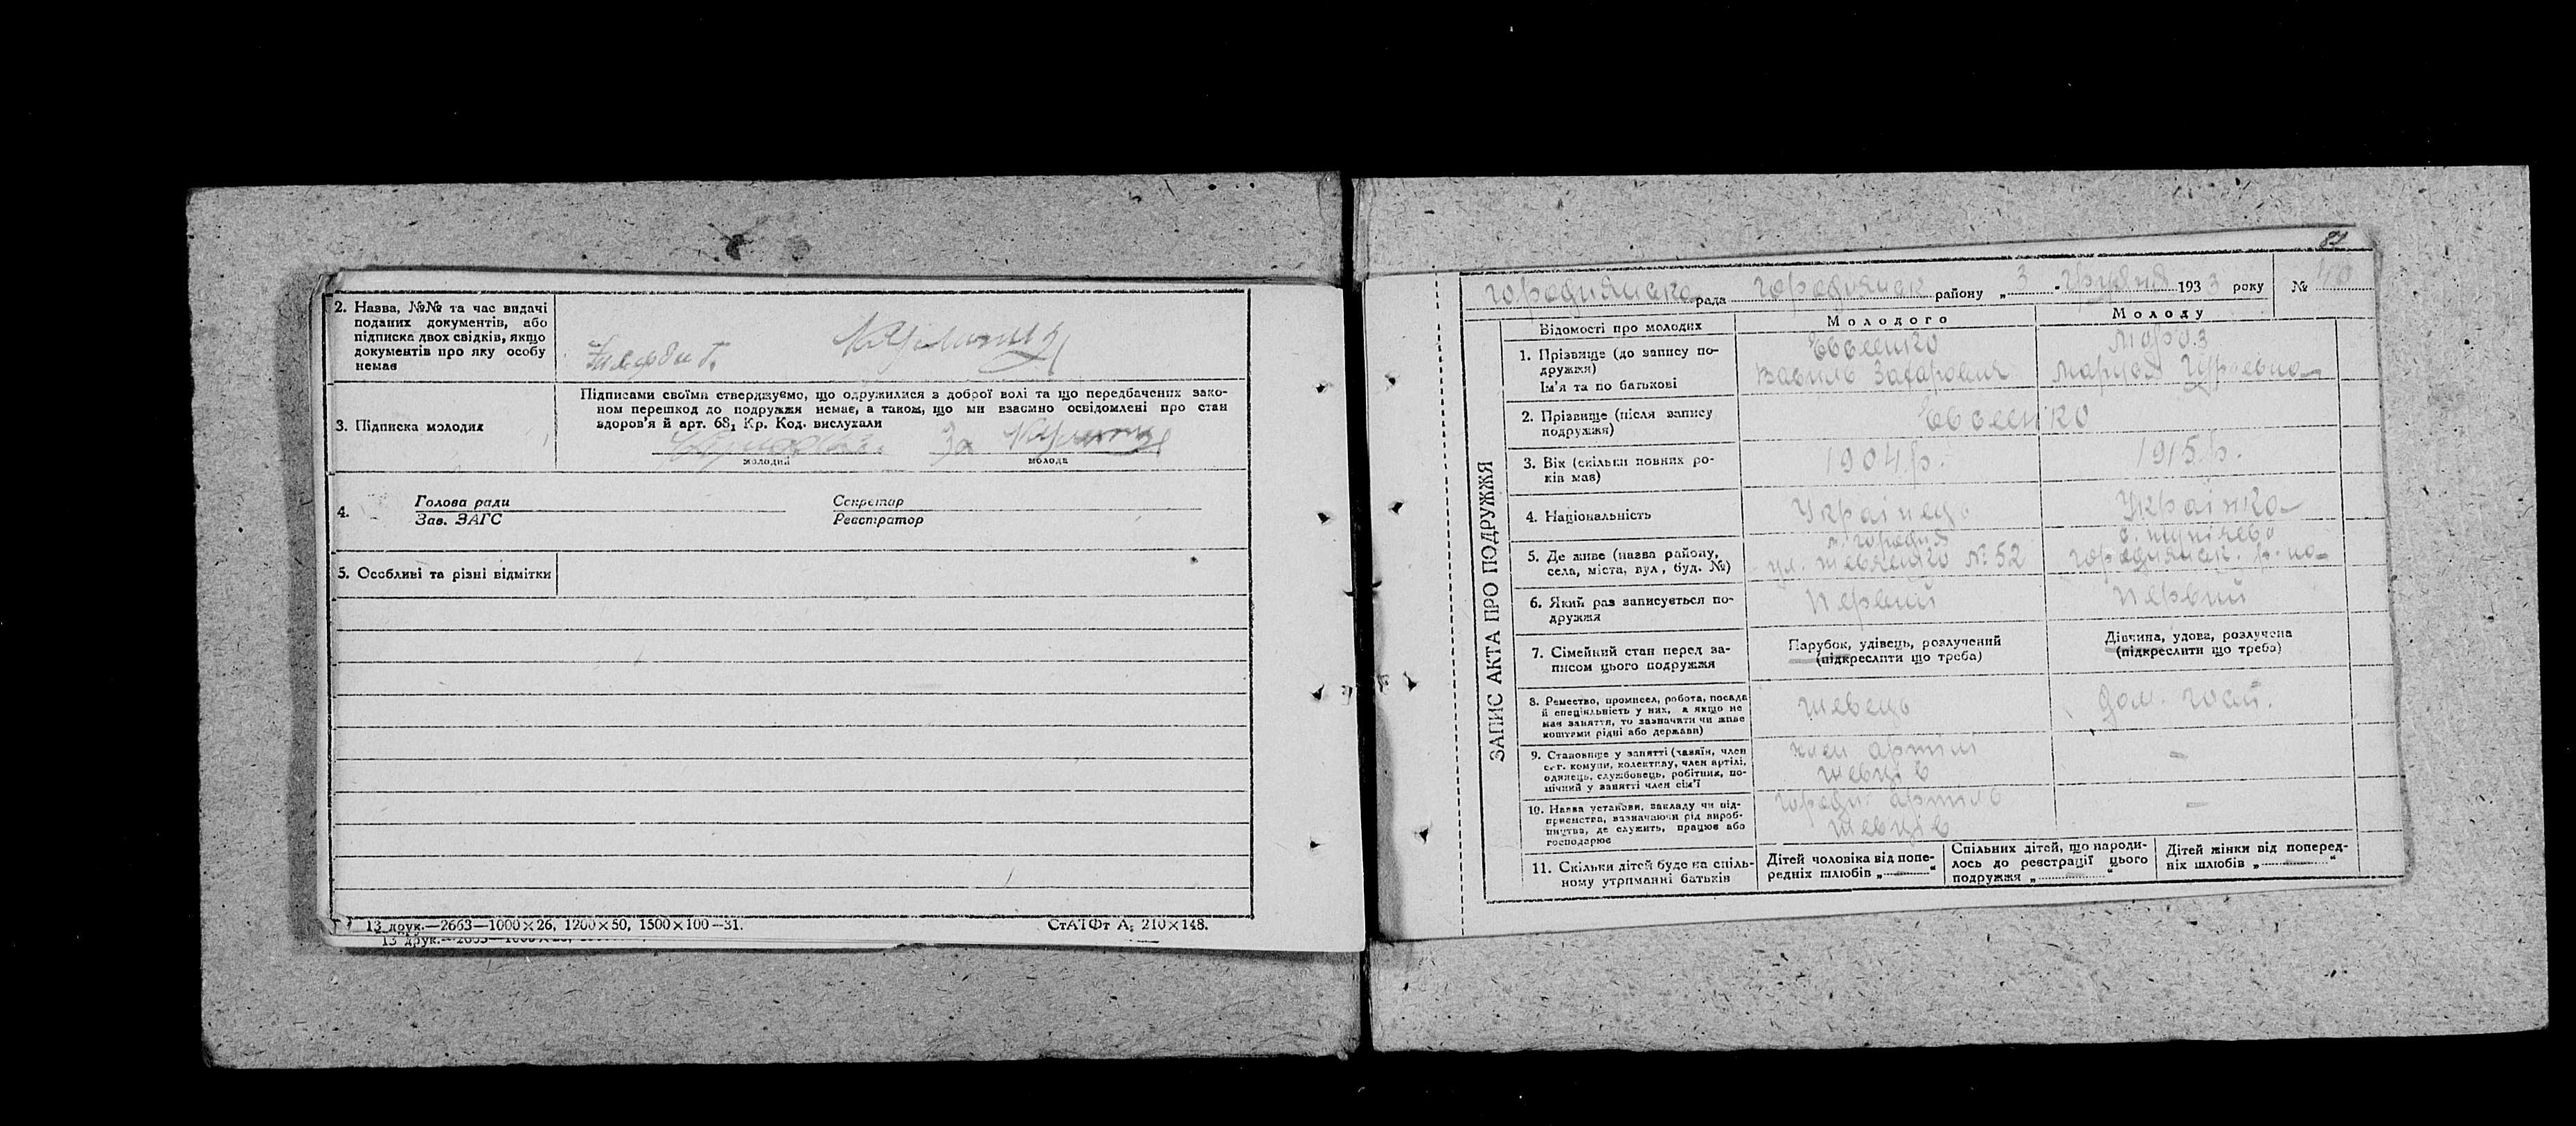 2. Назва, №№ та час видачі
поданих документів, або
підписка двох свідків, якщо
документів про яку особу
немає
3. Підписка молодих
Підписами своїми стверджуємо, що одружилися з доброї волі та що передбачених зако-
ном перешкод до подружжя немає, а також, що ми взаємно освідомлені про стан
здоров'я й арт. 68₁ Кр. Код. вислухали
За
молодий
молода
4.
Голова ради
Зав. ЗАГС
Секретар
Реєстратор
5. Особливі та різні відмітки
13 друк.—2663—1000×26, 1200×50, 1500×100—31.
СтАТФт А₅ 210×148.
81
Городнянска рада Городнянск району „3" Грудня 1933 року
№ 40
ЗАПИС АКТА ПРО ПОДРУЖЖЯ
Відомості про молодих
Молодого
Молоду
1. Прізвище (до запису по-
дружжя)
Ім'я та по батькові
Євсенко
Василь Захарович
Мороз
Маруся
2. Прізвище (після запису
подружжя)
Євсенко
3. Вік (скільки повних ро-
ків має)
1904 р.
1915 р.
4. Національність
Українець
Українка
5. Де живе (назва району,
села, міста, вул., буд. №)
м. Городня
ул. Шевченко № 52
с. Тупічево
Городнянск. р-на
6. Який раз записується по-
дружжя
Первий
Первий
7. Сімейний стан перед за-
писом цього подружжя
Парубок, удівець, розлучений
(підкреслити що треба)
Дівчина, удова, розлучена
(підкреслити що треба)
8. Ремество, промисел, робота, посада
й спеціяльність у них, а якщо не
має заняття, то зазначити чи живе
коштами рідні або держави)
Швець
Дом. госп.
9. Становище у занятті (хазяїн, член
с.-г. комуни, колективу, член артілі,
одинець, службовець, робітник, по-
мічний у занятті член сім'ї
член артілі
шевців
—
10. Назва установи, закладу чи під-
приємства, зазначаючи рід вироб-
ництва, де служить, працює або
господарює
Городн. артиль
шевців
—
11. Скільки дітей буде на спіль-
ному утриманні батьків
Дітей чоловіка від попе-
редніх шлюбів „—"
Спільних дітей, що народи-
лось до реєстрації цього
подружжя „—"
Дітей жінки від поперед-
ніх шлюбів „—"